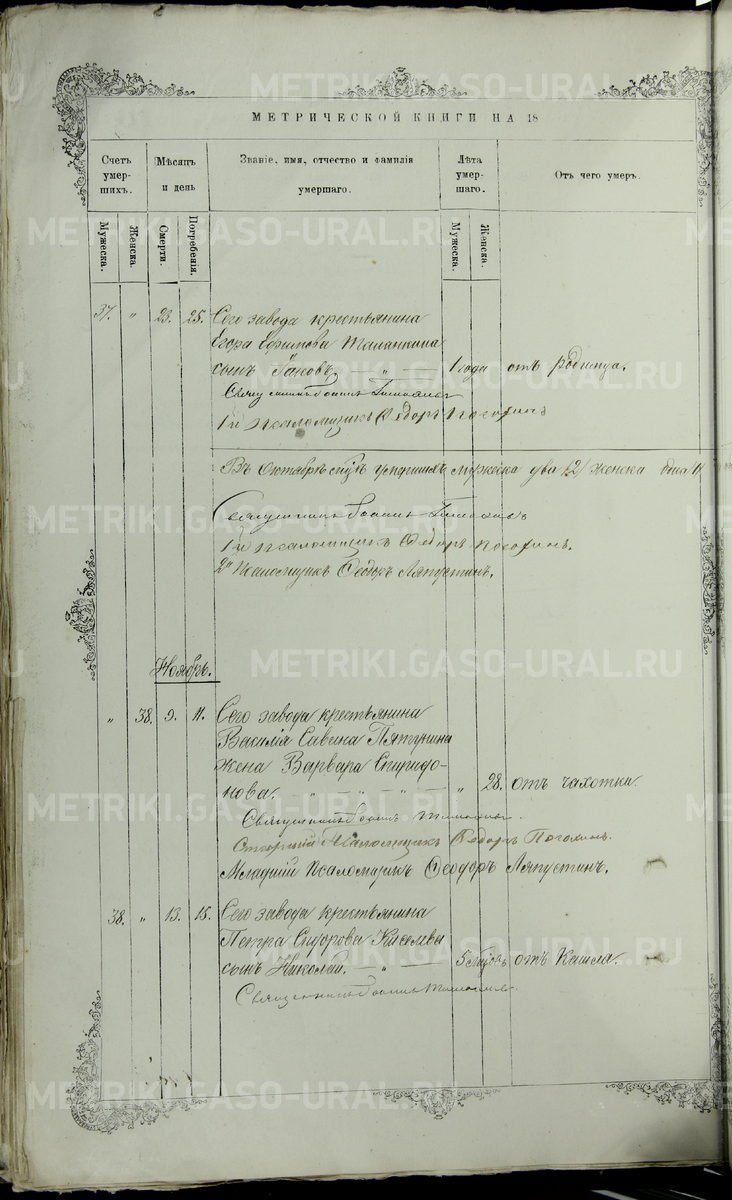 МЕТРИЧЕСКОЙ КНИГИ НА 18
Счетъ умер- шихъ. Мѣсяцъ и день Званіе, имя, отчество и фамилія умершаго. Лѣта умер- шаго. Отъ чего умеръ.
Мужеска. Женска. Смерти. Погребенія. Мужеска. Женска.
37. " 23. 25. Сего завода крестьянина
Егора Ефимова
сынъ Іаковъ. — " — 1 года отъ родимца.
Священникъ Іоаннъ
1й псаломщикъ Ѳедоръ
Въ Октябрѣ умершихъ мужеска два /2/ женска
Священникъ Іоаннъ
1й псаломщикъ Ѳедоръ
2й Псаломщикъ Ѳеодоръ Ляпустинъ.
Ноябрь.
" 38. 9. 11. Сего завода крестьянина
Василія Савина Пятунина
жена Варвара Спиридо-
нова. — " — " — " — " 28. отъ чахотки.
Священникъ Іоаннъ
Старшій Псаломщикъ Ѳедоръ
Младшій Псаломщикъ Ѳеодоръ Ляпустинъ.
38. " 13. 15. Сего завода крестьянина
Петра Сидорова Киселева
сынъ Николай. — " — 5 отъ Кашля.
Священникъ Іоаннъ
METRIKI.GASO-URAL.RU